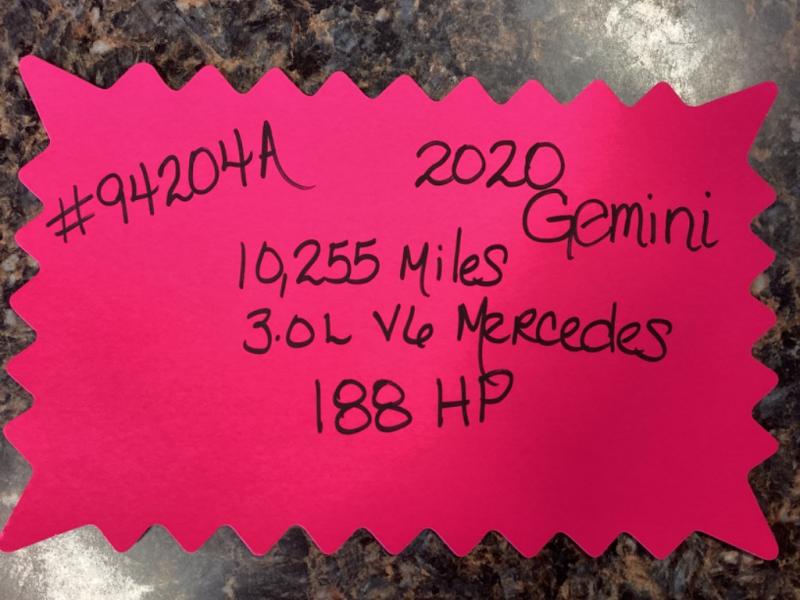 #94204A 2020
Gemini
10,255 Miles
3.0L V6 Mercedes
188 HP